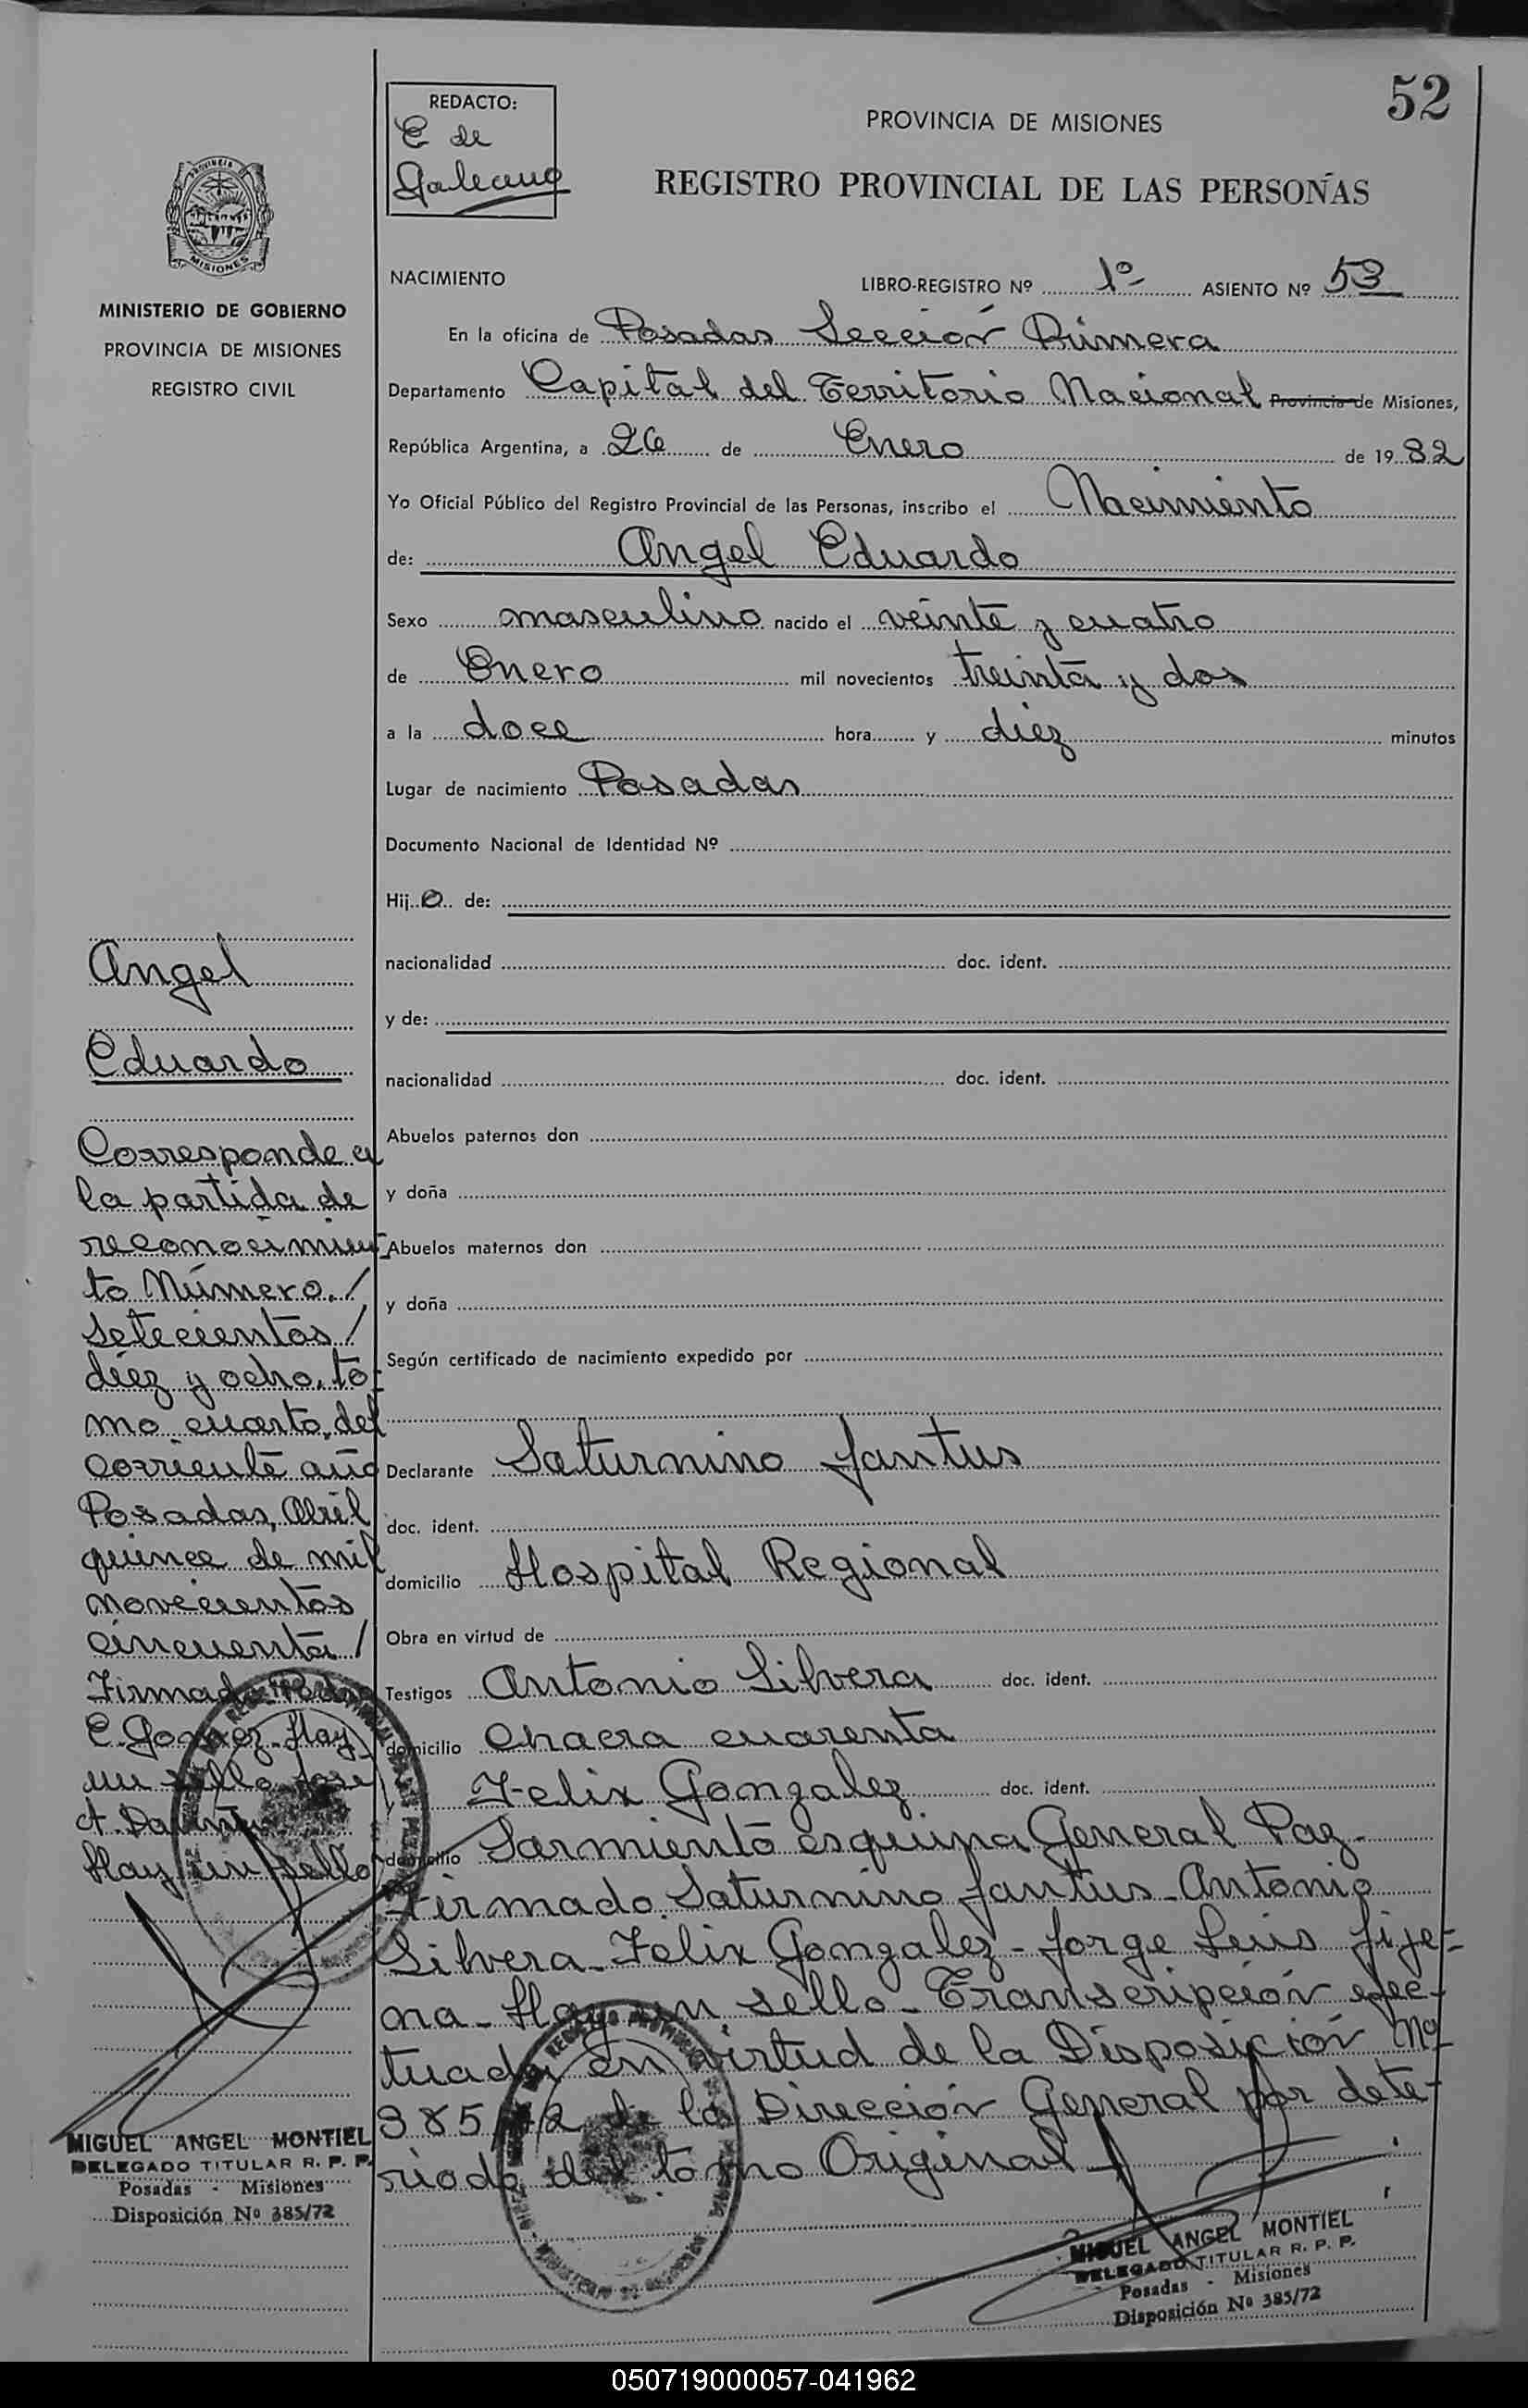 52
REDACTO:
E de
Galeano
PROVINCIA DE MISIONES
REGISTRO PROVINCIAL DE LAS PERSONAS
PROVINCIA
MISIONES
MINISTERIO DE GOBIERNO
PROVINCIA DE MISIONES
REGISTRO CIVIL
NACIMIENTO
LIBRO-REGISTRO Nº 1º ASIENTO Nº 53
En la oficina de Posadas Sección Primera
Departamento Capital del Territorio Nacional Provincia de Misiones,
República Argentina, a 26 de Enero de 19 32
Yo Oficial Público del Registro Provincial de las Personas, inscribo el Nacimiento
de: Angel Eduardo
Sexo masculino nacido el veinte y cuatro
de Enero mil novecientos treinta y dos
a la doce hora y diez minutos
Lugar de nacimiento Posadas
Documento Nacional de Identidad Nº
Hij o de:
nacionalidad doc. ident.
y de:
nacionalidad doc. ident.
Abuelos paternos don
y doña
Abuelos maternos don
y doña
Según certificado de nacimiento expedido por
Declarante Saturnino Jantus
doc. ident.
domicilio Hospital Regional
Obra en virtud de
Testigos Antonio Silvera doc. ident.
domicilio Chacra cuarenta
y Felix Gonzalez doc. ident.
domicilio Sarmiento esquina General Paz-
Firmado Saturnino Jantus-Antonio
Silvera-Felix Gonzalez-Jorge Luis Jije=
na-Hay un sello-Transcripción efec-
tuada en virtud de la Disposición Nº
385/72 de la Dirección General por dete-
riodo del tomo Original
Angel
Eduardo
Corresponde a
la partida de
reconocimien-
to Número /
setecientos /
diez y ocho, to=
mo cuarto, del
corriente año
Posadas, Abril
quince de mil
novecientos
cincuenta /
Firmado
E. Gomez-Hay
un sello José
A.
Hay un sello
MIGUEL ANGEL MONTIEL
DELEGADO TITULAR R. P. P.
Posadas - Misiones
Disposición Nº 385/72
MIGUEL ANGEL MONTIEL
DELEGADO TITULAR R. P. P.
Posadas - Misiones
Disposición Nº 385/72
050719000057-041962